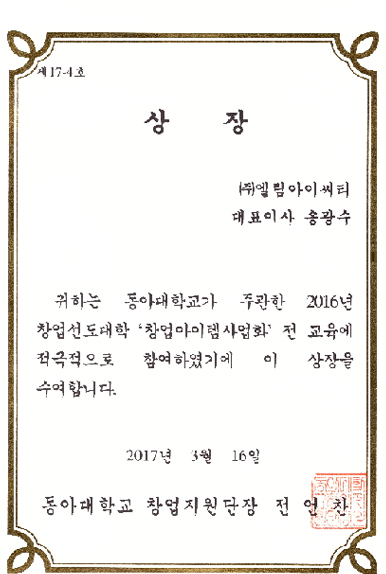 제17-4호
상 장
㈜엘림아이씨티
대표이사 송광수
귀하는 동아대학교가 주관한 2016년
창업선도대학 '창업아이템사업화' 전 교육에
적극적으로 참여하였기에 이 상장을
수여합니다.
2017년 3월 16일
동아대학교 창업지원단장 전 언 찬